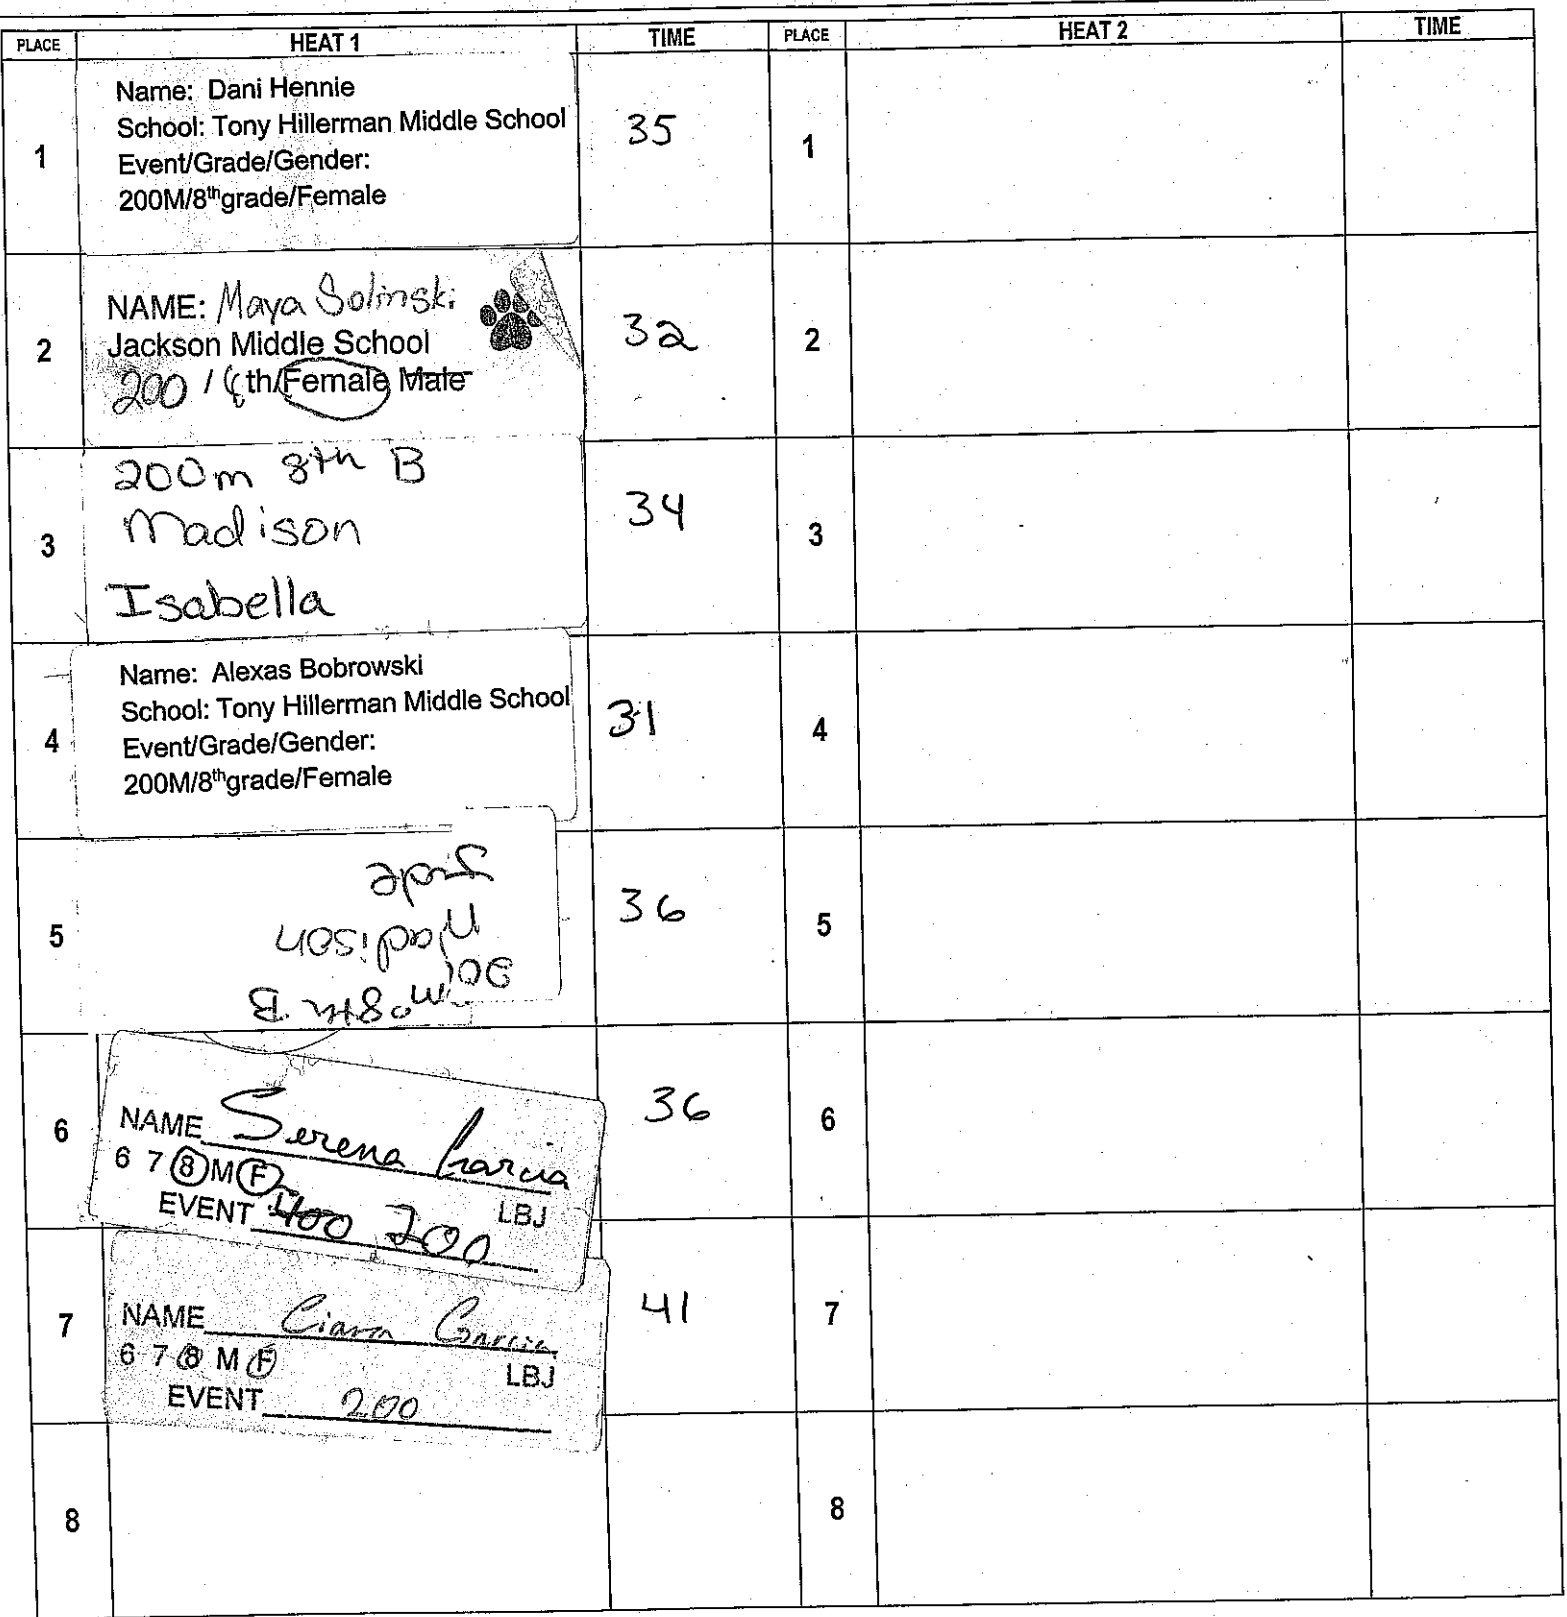 PLACE HEAT 1 TIME PLACE HEAT 2 TIME
1
Name: Dani Hennie
School: Tony Hillerman Middle School
Event/Grade/Gender:
200M/8thgrade/Female
35
1
2
NAME: Maya Solinski
Jackson Middle School
200 / 8th/Female Male
32
2
3
200m 8th B
Madison
Isabella
34
3
4
Name: Alexas Bobrowski
School: Tony Hillerman Middle School
Event/Grade/Gender:
200M/8thgrade/Female
31
4
5
200m 8th B
Madison
36
5
6
NAME Serena Garcia
6 7 8 M F
EVENT 400 200 LBJ
36
6
7
NAME Ciara Garcia
6 7 8 M F
LBJ
EVENT 200
41
7
8
8